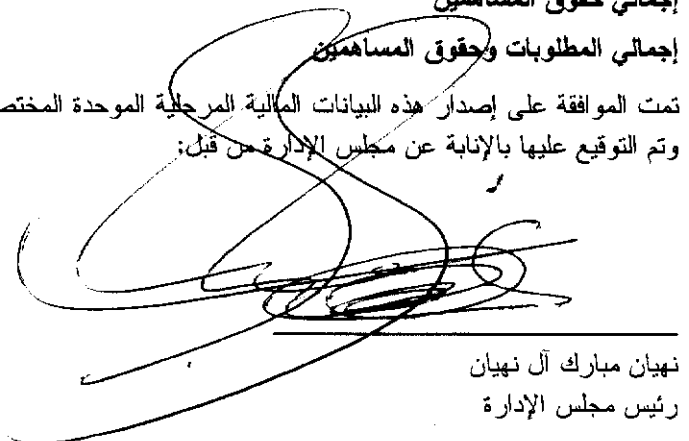 إجمالي حقوق المساهمين
إجمالي المطلوبات وحقوق المساهمين
تمت الموافقة على إصدار هذه البيانات المالية المرحلية الموحدة المختص
وتم التوقيع عليها بالإنابة عن مجلس الإدارة من قبل:
نهيان مبارك آل نهيان
رئيس مجلس الإدارة